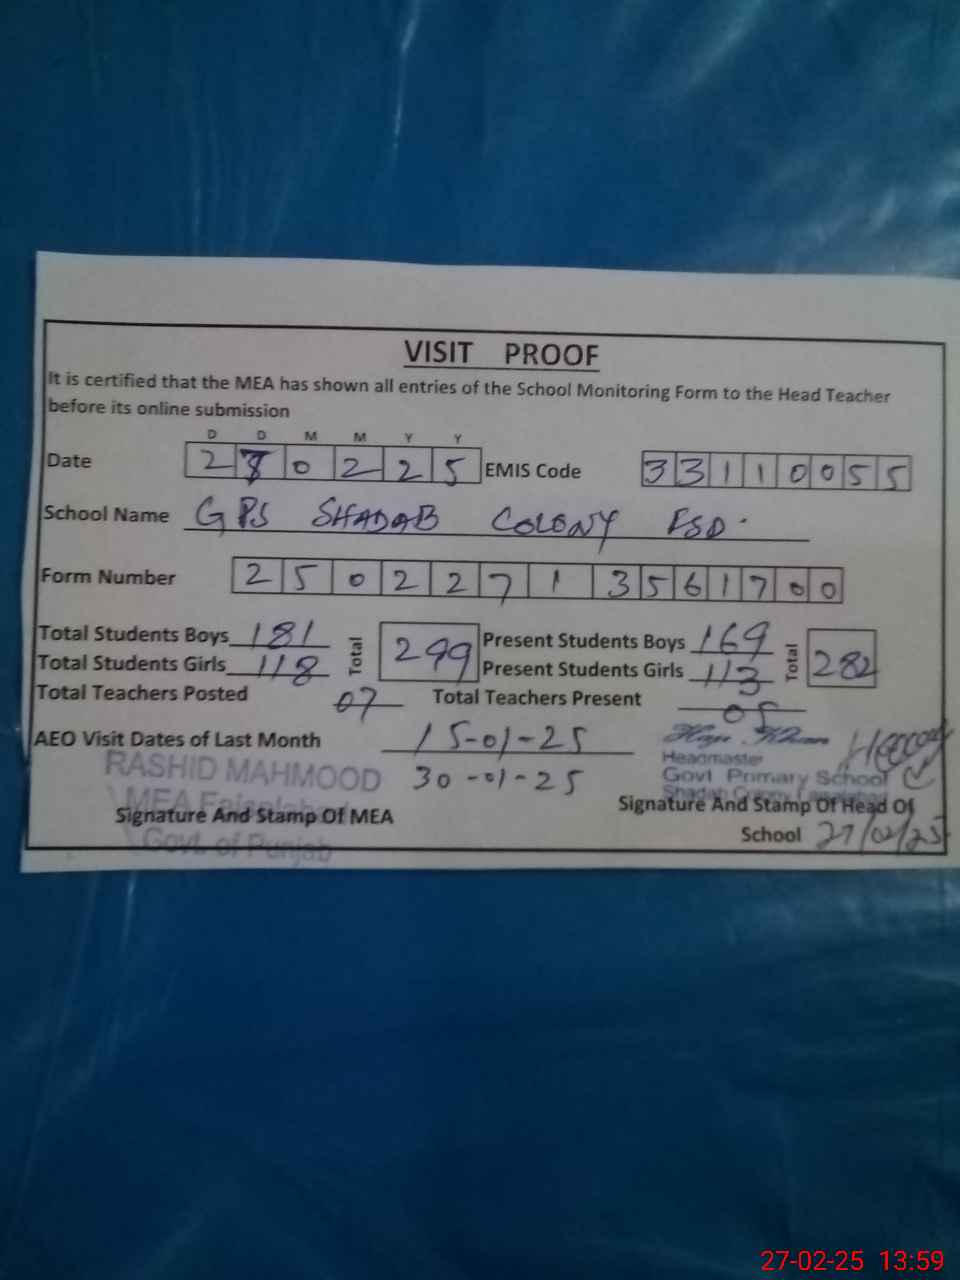 VISIT PROOF
It is certified that the MEA has shown all entries of the School Monitoring Form to the Head Teacher
before its online submission
D D M M Y Y
Date 2 7 0 2 2 5 EMIS Code 3 3 1 1 0 0 5 5
School Name GPS SHADAB COLONY FSD.
Form Number 2 5 0 2 2 7 1 3 5 6 1 7 0 0
Total Students Boys 181 Total 299 Present Students Boys 169 Total 282
Total Students Girls 118 Present Students Girls 113
Total Teachers Posted 07 Total Teachers Present 05
AEO Visit Dates of Last Month 15-01-25
30-01-25
RASHID MAHMOOD
MEA Faisalabad
Govt. of Punjab
Signature And Stamp Of MEA
Headmaster
Govt Primary School
Shadab Colony Faisalabad
Signature And Stamp Of Head Of
School 27/02/25
27-02-25 13:59